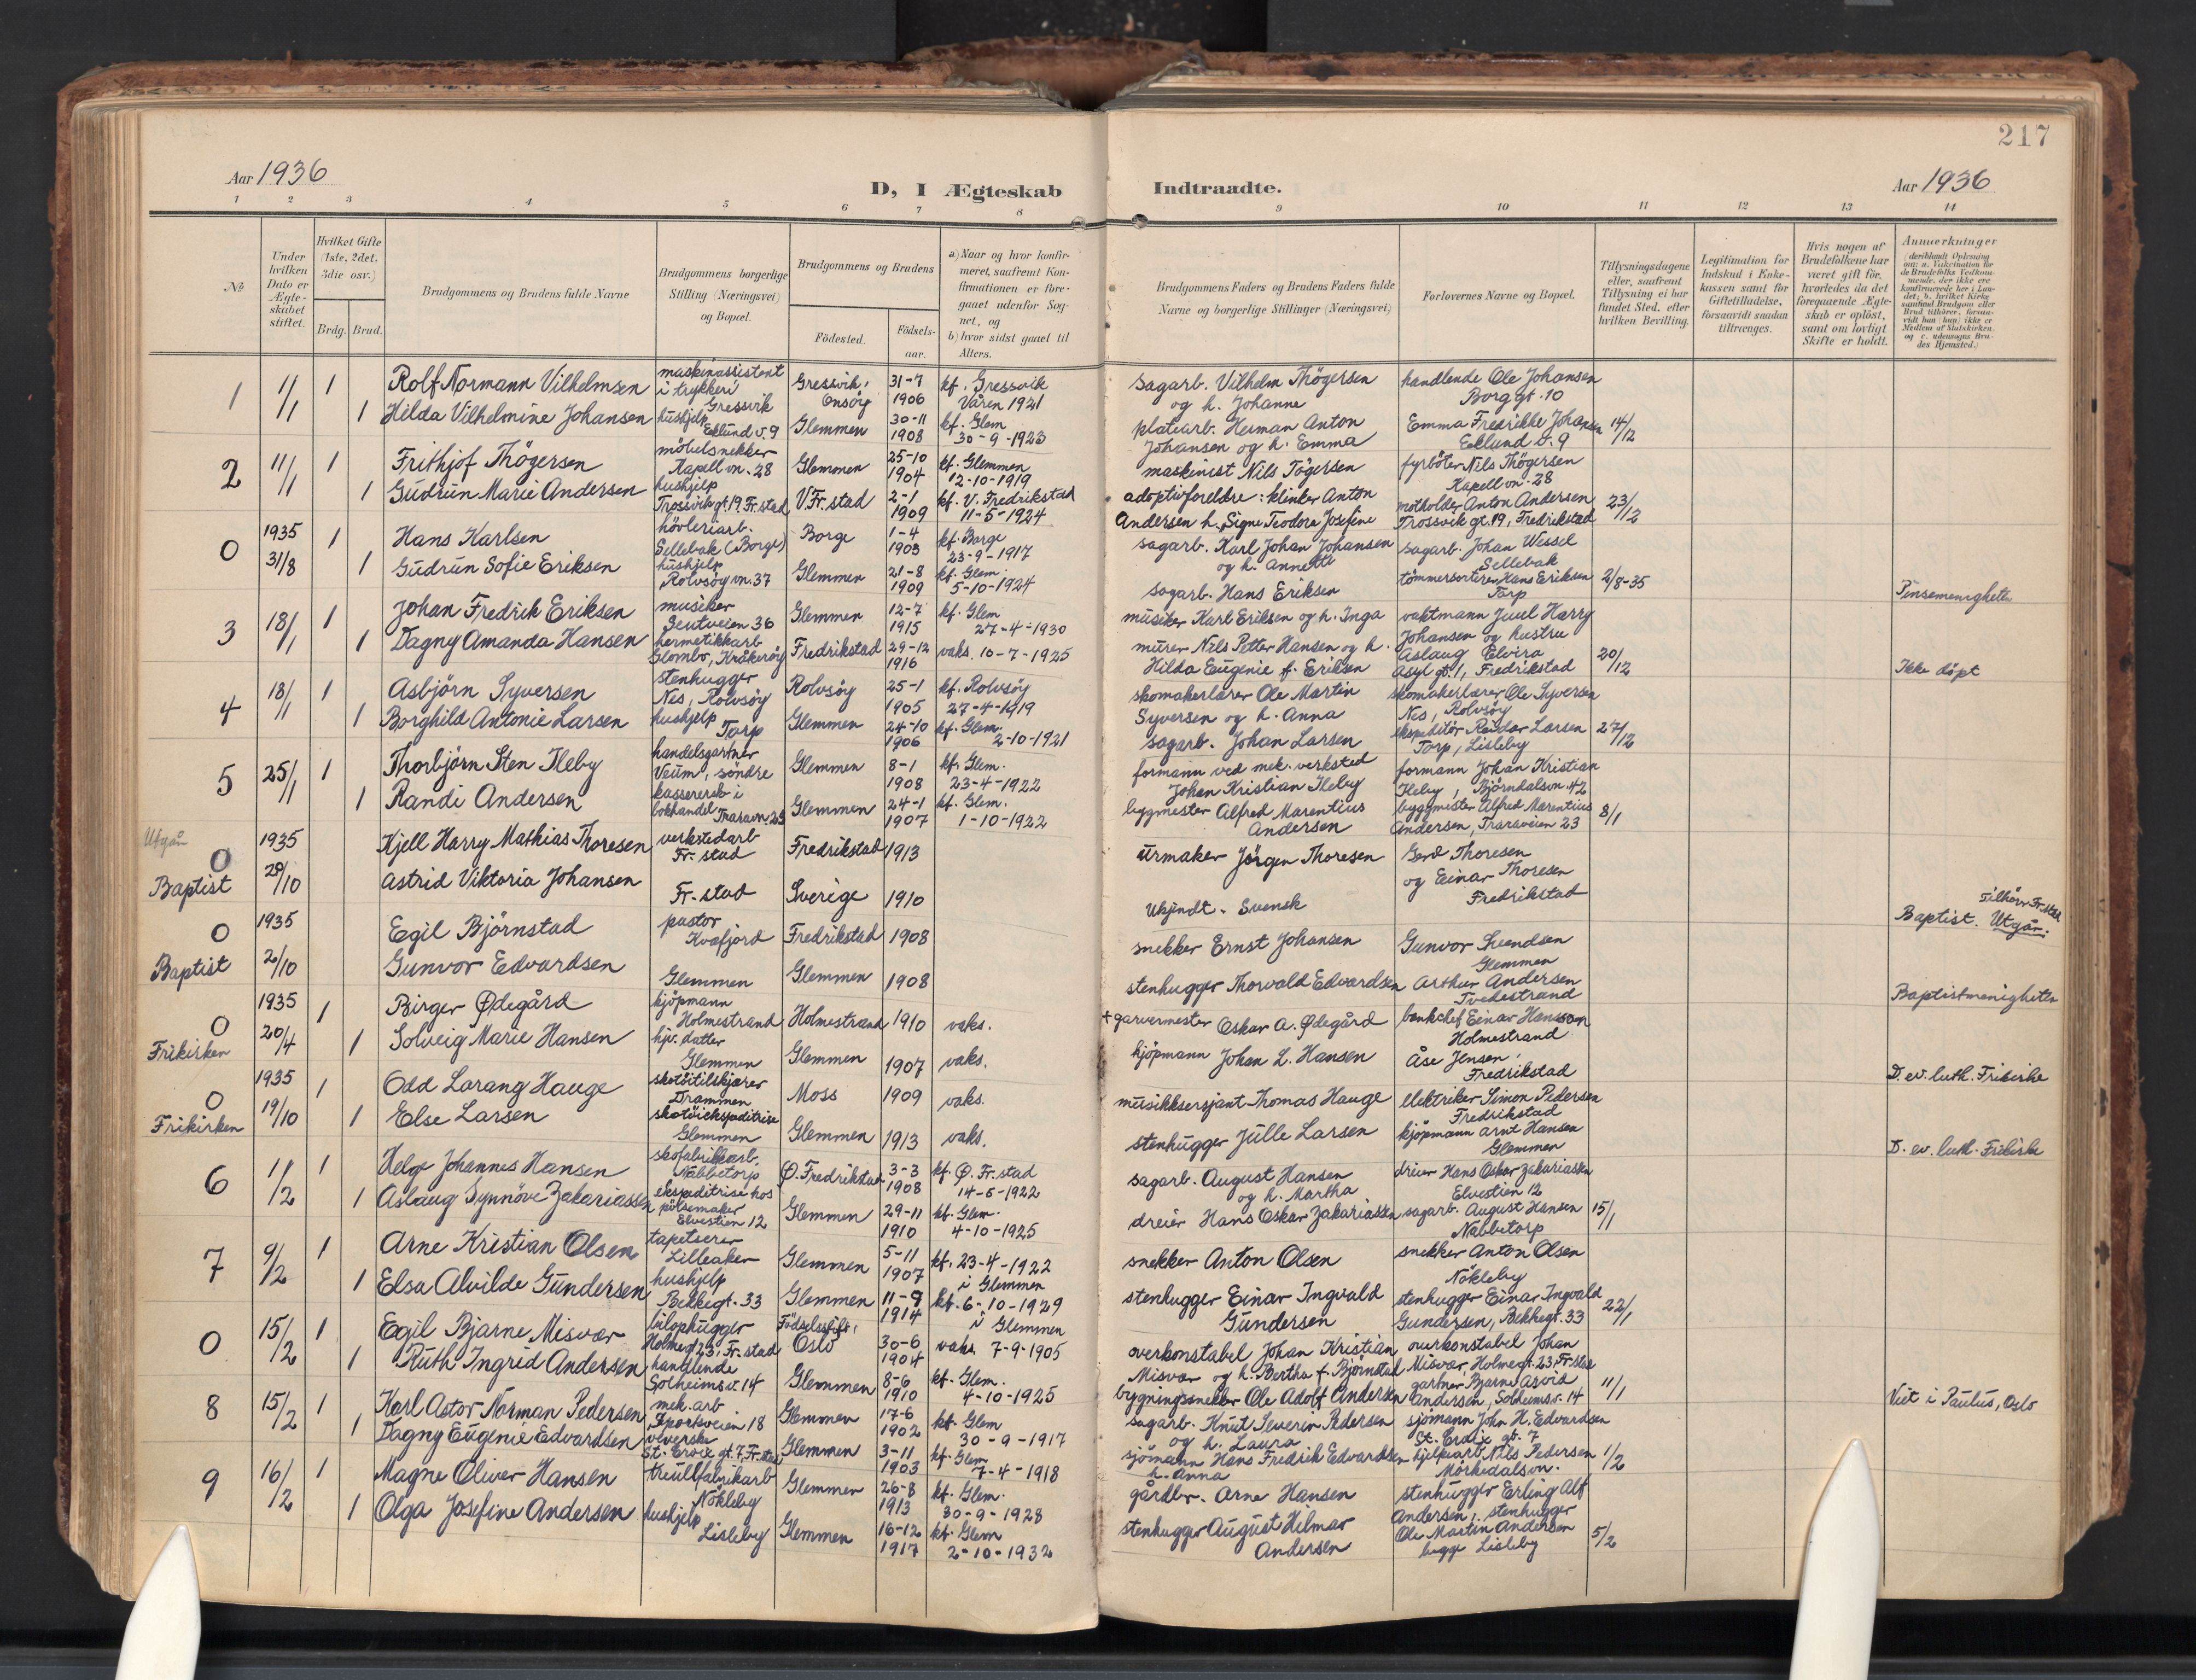 217
Aar 1936
D, I Ægteskab Indtraadte.
Aar 1936
1 2 3 4 5 6 7 8 9 10 11 12 13 14
No
Under hvilken Dato er Ægteskabet stiftet.
Hvilket Gifte (1ste, 2det, 3die osv.)
Brdg. Brud.
Brudgommens og Brudens fulde Navne
Brudgommens borgerlige Stilling (Næringsvei) og Bopæl.
Brudgommens og Brudens
Födested. Födsels-aar.
a) Naar og hvor konfirmeret, saafremt Konfirmationen er foregaaet udenfor Sognet, og
b) hvor sidst gaaet til Alters.
Brudgommens Faders og Brudens Faders fulde Navne og borgerlige Stillinger (Næringsvei)
Forlovernes Navne og Bopæl.
Tillysningsdagene eller, saafremt Tillysning ei har fundet Sted, efter hvilken Bevilling.
Legitimation for Indskud i Enkekassen samt for Giftetilladelse, forsaavidt saadan tiltrænges.
Hvis nogen af Brudefolkene har været gift för, hvorledes da det foregaaende Ægteskab er oplöst, samt om lovligt Skifte er holdt.
Anmerkninger
1 1/1 1 Rolf Normann Vilhelmsen maskinassistent i trykkeri Gressvik Gressvik, Onsöy 31-7 1906 kf. Gressvik Våren 1921 sagarb. Vilhelm Thögersen og h. Johanne handlende Ole Johansen Borg gt. 10
1 Hilda Vilhelmine Johansen hushjelp Eklund v. 9 Glemmen 30-11 1908 kf. Glem 30-9-1923 platearb. Herman Anton Johansen og h. Emma Emma Fredrikke Johansen Eklund v. 9 14/12
2 11/1 1 Frithjof Thögersen möbelsnekker Kapell vn. 28 Glemmen 25-10 1904 kf. Glemmen 12-10-1919 maskinist Nils Tögersen fyrböter Nils Thögersen Kapell vn. 28
1 Gudrun Marie Andersen hushjelp Trossvik gt. 19 Fr.stad V. Fr. stad 2-1 1909 kf. V. Fredrikstad 11-5-1924 adoptivforeldre: klinker Anton Andersen h. Signe Teodora Josefine motholder Anton Andersen Trossvik gt. 19, Fredrikstad 23/12
0 1935 31/8 1 Hans Karlsen hövleriarb. Sellebak (Borge) Borge 1-4 1903 kf. Borge 23-9-1917 sagarb. Karl Johan Johansen og h. Annette sagarb. Johan Wessel Sellebak
1 Gudrun Sofie Eriksen hushjelp Rolvsöy vn. 37 Glemmen 21-8 1909 kf. Glem. 5-10-1924 sagarb. Hans Eriksen tömmersorterer Hans Eriksen Torp 2/8-35 Pinsemenigheten
3 18/1 1 Johan Fredrik Eriksen musiker Glemmen 12-7 1915 kf. Glem 27-4-1930 musiker Karl Eriksen og h. Inga vaktmann Juul Harry Johansen og hustru
1 Dagny Amanda Hansen hermetikkarb Glombo, Kråkeröy Fredrikstad 29-12 1916 vaks. 10-7-1925 murer Nils Petter Hansen og h. Hilda Eugenie f. Eriksen Aslaug Elvira Asyl gt. 1, Fredrikstad 20/12 Ikke döpt
4 18/1 1 Asbjörn Syversen stenhugger Nes, Rolvsöy Rolvsöy 25-1 1905 kf. Rolvsöy 27-4-1919 skomakerlærer Ole Martin Syversen og h. Anna skomakerlærer Ole Syversen Nes, Rolvsöy
1 Borghild Antonie Larsen hushjelp Torp Glemmen 24-10 1906 kf. Glem. 2-10-1921 sagarb. Johan Larsen ekspeditör Reidar Larsen Torp, Lisleby 27/12
5 25/1 1 Thorbjörn Sten Ileby handelsgartner Veum, söndre Glemmen 8-1 1908 kf. Glem. 23-4-1922 formann ved mek. verksted Johan Kristian Ileby formann Johan Kristian Ileby, Björndalsvn. 42
1 Randi Andersen kassererske i bokhandel Traravn. 23 Glemmen 24-1 1907 kf. Glem. 1-10-1922 bygmester Alfred Marentius Andersen byggmester Alfred Marentius Andersen, Traraveien 23 8/1
Utgår 0 Baptist 1935 29/10 Kjell Harry Mathias Thoresen verkstedarb Fr. stad Fredrikstad 1913 urmaker Jörgen Thoresen Gerd Thoresen og Einar Thoresen Fredrikstad
Astrid Viktoria Johansen Fr. stad Sverige 1910 Ukjendt. Svensk Tilhörer Fr. stad Baptist. Utgår.
0 Baptist 1935 2/10 Egil Björnstad pastor Kvæfjord Fredrikstad 1908 snekker Ernst Johansen Gunvor Svendsen Glemmen
Gunvor Edvardsen Glemmen Glemmen 1908 stenhugger Thorvald Edvardsen Arthur Andersen Tvedestrand Baptistmenigheten
0 Frikirken 1935 20/4 1 Birger Ødegård kjöpmann Holmestrand Holmestrand 1910 vaks. + garvermester Oskar A. Ødegård bankchef Einar Hansson Holmestrand
1 Solveig Marie Hansen hjv. datter Glemmen Glemmen 1907 vaks. kjöpmann Johan L. Hansen Åse Jensen, Fredrikstad D. ev. luth. Frikirke
0 Frikirken 1935 19/10 1 Odd Lorang Hauge skotöitilskjærer Drammen Moss 1909 vaks. musikksersjant Thomas Hauge elektriker Simon Pedersen Fredrikstad
1 Else Larsen skotöiekspeditrise Glemmen Glemmen 1913 vaks. stenhugger Julle Larsen kjöpmann Arnt Hansen Glemmen D. ev. luth. Frikirke
6 1/2 1 Helge Johannes Hansen skofabrikkarb. Nabbetorp Ø. Fredrikstad 3-3 1908 kf. Ø. Fr. stad 14-5-1922 sagarb. August Hansen og h. Martha dreier Hans Oskar Zakariassen Elvestien 12
1 Aslaug Synnöve Zakariassen ekspeditrise hos pölsemaker Elvestien 12 Glemmen 29-11 1910 kf. Glem. 4-10-1925 dreier Hans Oskar Zakariassen sagarb. August Hansen Nabbetorp 15/1
7 9/2 1 Arne Kristian Olsen tapetserer Lilleaker Glemmen 5-11 1907 kf. 23-4-1922 i Glemmen snekker Anton Olsen snekker Anton Olsen Nökleby
1 Elsa Alvilde Gundersen hushjelp Bekkegt. 33 Glemmen 11-9 1914 kf. 6-10-1929 i Glemmen stenhugger Einar Ingvald Gundersen stenhugger Einar Ingvald Gundersen, Bekkegt. 33 22/1
0 15/2 1 Egil Bjarne Misvær Holmegt 23, Fr. stad Oslo 30-6 1904 vaks. 7-9-1905 overkonstabel Johan Kristian Misvær og h. Bertha f. Björnstad overkonstabel Johan Misvær, Holmegt. 23, Fr. stad
1 Ruth Ingrid Andersen handlende Solheimsv. 14 Glemmen 8-6 1910 kf. Glem. 4-10-1925 bygningssnekker Ole Adolf Andersen gartner Bjarne Asvid Andersen, Solheimsv. 14 11/1 Viet i Paulus, Oslo
8 15/2 1 Karl Astor Norman Pedersen mek. arb Sportsveien 18 Glemmen 17-6 1902 kf. Glem 30-9-1917 sagarb. Knut Severin Pedersen og h. Laura sjömann John H. Edvardsen St. Croix gt. 7
1 Dagny Eugenie Edvardsen veverske St. Croix gt. 7, Fr. stad Glemmen 3-11 1903 kf. Glem 7-4-1918 sjömann Hans Fredrik Edvardsen h. Anna hjelpearb. Nils Pedersen Mörkedalsvn. 1/2
9 16/2 1 Magne Oliver Hansen treullfabrikarb Nökleby Glemmen 26-8 1913 kf. Glem. 30-9-1928 gårdbr. Arne Hansen stenhugger Erling Alf Andersen, stenhugger
1 Olga Josefine Andersen hushjelp Lisleby Glemmen 16-12 1917 kf. Glem 2-10-1932 stenhugger August Hilmar Andersen Ole Martin Andersen begge Lisleby 5/2